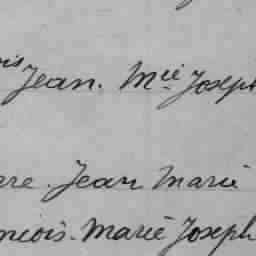 ois Jean. Mie Joseph
re. Jean Marie
ncois. Marie Joseph